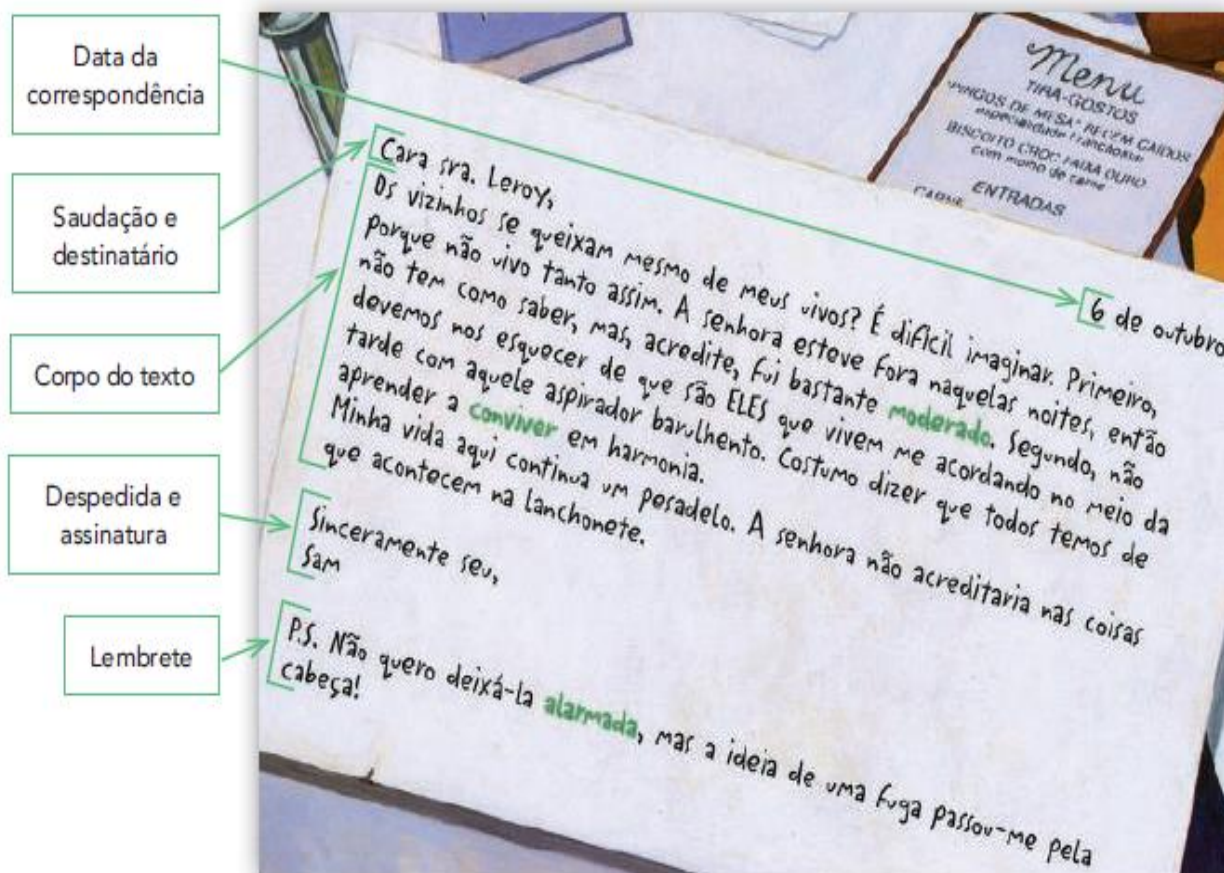 Data da
correspondência
Saudação e
destinatário
Corpo do texto
Despedida e
assinatura
Lembrete
Menu
TIRA-GOSTOS
"PINGOS DE MESA" RECÉM CAÍDOS
especialidade
BISCOITO CROC FAIXA OURO
com molho de carne
ENTRADAS
CARNE
6 de outubro
Cara sra. Leroy,
Os vizinhos se queixam mesmo de meus uivos? É difícil imaginar. Primeiro,
porque não uivo tanto assim. A senhora esteve fora naquelas noites, então
não tem como saber, mas, acredite, fui bastante moderado. Segundo, não
devemos nos esquecer de que são ELES que vivem me acordando no meio da
tarde com aquele aspirador barulhento. Costumo dizer que todos temos de
aprender a conviver em harmonia.
Minha vida aqui continua um pesadelo. A senhora não acreditaria nas coisas
que acontecem na lanchonete.
Sinceramente seu,
Sam
P.S. Não quero deixá-la alarmada, mas a ideia de uma fuga passou-me pela
cabeça!